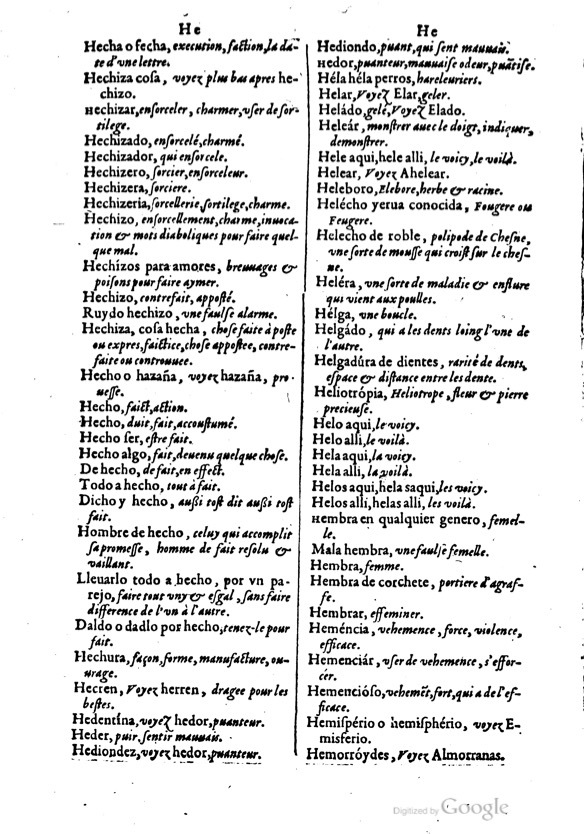 He
Hecha o fecha, execution, faction, la da-
te d'vne lettre.
Hechiza cosa, voyez plus bas apres he-
chizo.
Hechizar, ensorceler, charmer, vser de sor-
tilege.
Hechizado, ensorcelé, charmé.
Hechizador, qui ensorcele.
Hechizero, sorcier, ensorceleur.
Hechizera, sorciere.
Hechizeria, sorcellerie, sortilege, charme.
Hechizo, ensorcellement, charme, inuoca-
tion & mots diaboliques pour faire quel-
que mal.
Hechízos para amores, breuuages &
poisons pour faire aymer.
Hechizo, contrefait, apposté.
Ruydo hechizo, vne faulse alarme.
Hechiza, cosa hecha, chose faite à poste
ou expres, faictice, chose appostee, contre-
faite ou controuuee.
Hecho o hazaña, voyez hazaña, pro-
uesse.
Hecho, faict, action.
Hecho, duit, fait, accoustumé.
Hecho ser, estre fait.
Hecho algo, fait, deuenu quelque chose.
De hecho, de fait, en effect.
Todo a hecho, tout à fait.
Dicho y hecho, außi tost dit außi tost
fait.
Hombre de hecho, celuy qui accomplit
sa promesse, homme de fait resolu &
vaillant.
Lleuarlo todo a hecho, por vn pa-
rejo, faire tout vny & esgal, sans faire
difference de l'vn à l'autre.
Daldo o dadlo por hecho, tenez-le pour
fait.
Hechura, façon, forme, manufacture, ou-
urage.
Hecren, Voyez herren, dragee pour les
bestes.
Hedentína, voyez hedor, puanteur.
Heder, puir, sentir mauuais.
Hediondez, voyez hedor, puanteur.
He
Hediondo, puant, qui sent mauuais.
Hedor, puanteur, mauuaise odeur, puãtise.
Héla héla perros, hareleuriers.
Helar, Voyez Elar, geler.
Heládo, gelé, Voyez Elado.
Heleár, monstrer auec le doigt, indiquer,
demonstrer.
Hele aqui, hele alli, le voicy, le voilà.
Helear, Voyez Ahelear.
Heleboro, Elebore, herbe & racine.
Helécho yerua conocida, Fougere ou
Feugere.
Helecho de roble, polipode de Chesne,
vne sorte de mousse qui croist sur le ches-
ne.
Heléra, vne sorte de maladie & enflure
qui vient aux poulles.
Hélga, vne boucle.
Helgádo, qui a les dents loing l'vne de
l'autre.
Helgadûra de dientes, rarité de dents,
espace & distance entre les dente.
Heliotrópia, Heliotrope, fleur & pierre
precieuse.
Helo aqui, le voicy.
Helo alli, le voilà.
Hela aqui, la voicy.
Hela alli, la voilà.
Helos aqui, hela saqui, les voicy.
Helos alli, helas alli, les voilà.
Hembra en qualquier genero, femel-
le.
Mala hembra, vne faulse femelle.
Hembra, femme.
Hembra de corchete, portiere d'agraf-
fe.
Hembrar, effeminer.
Heméncia, vehemence, force, violence,
efficace.
Hemenciár, vser de vehemence, s'effor-
cer.
Hemencióso, vehemẽt, fort, qui a de l'ef-
ficace.
Hemispério o hemisphério, voyez E-
misferio.
Hemorróydes, Voyez Almorranas.
Digitized by Google